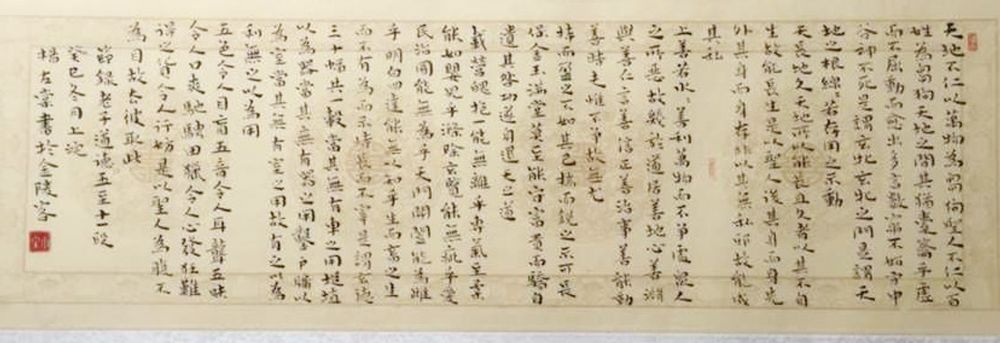 天地不仁以萬物為芻狗聖人不仁以百
姓為芻狗天地之間其猶橐籥乎虛
而不屈動而愈出多言數窮不如守中
谷神不死是謂玄牝玄牝之門是謂天
地之根綿〻若存用之不動
天長地久天地所以能長且久者以其不自
生故能長生是以聖人後其身而身先
外其身而身存非以其無私邪故能成
其私
上善若水〻善利萬物而不爭處眾人
之所惡故幾於道居善地心善淵
與善仁言善信正善治事善能動
善時夫惟不爭故無尤
持而盈之不如其已揣而銳之不可長
保金玉滿堂莫之能守富貴而驕自
遺其咎功遂身退天之道
載營魄抱一能無離乎專氣至柔
能如嬰兒乎滌除玄覽能無疵乎愛
民治國能無為乎天門開闔能為雌
乎明白四達能無以知乎生而畜之生
而不有為而不恃長而不宰是謂玄德
三十輻共一轂當其無有車之用埏埴
以為器當其無有器之用鑿戶牖以
為室當其無有室之用故有之以為
利無之以為用
五色令人目盲五音令人耳聾五味
令人口爽馳騁田獵令人心發狂難
得之貨令人行妨是以聖人為腹不
為目故去彼取此
節錄老子道德五至十一段
癸巳冬月上浣
左棠書於金陵客